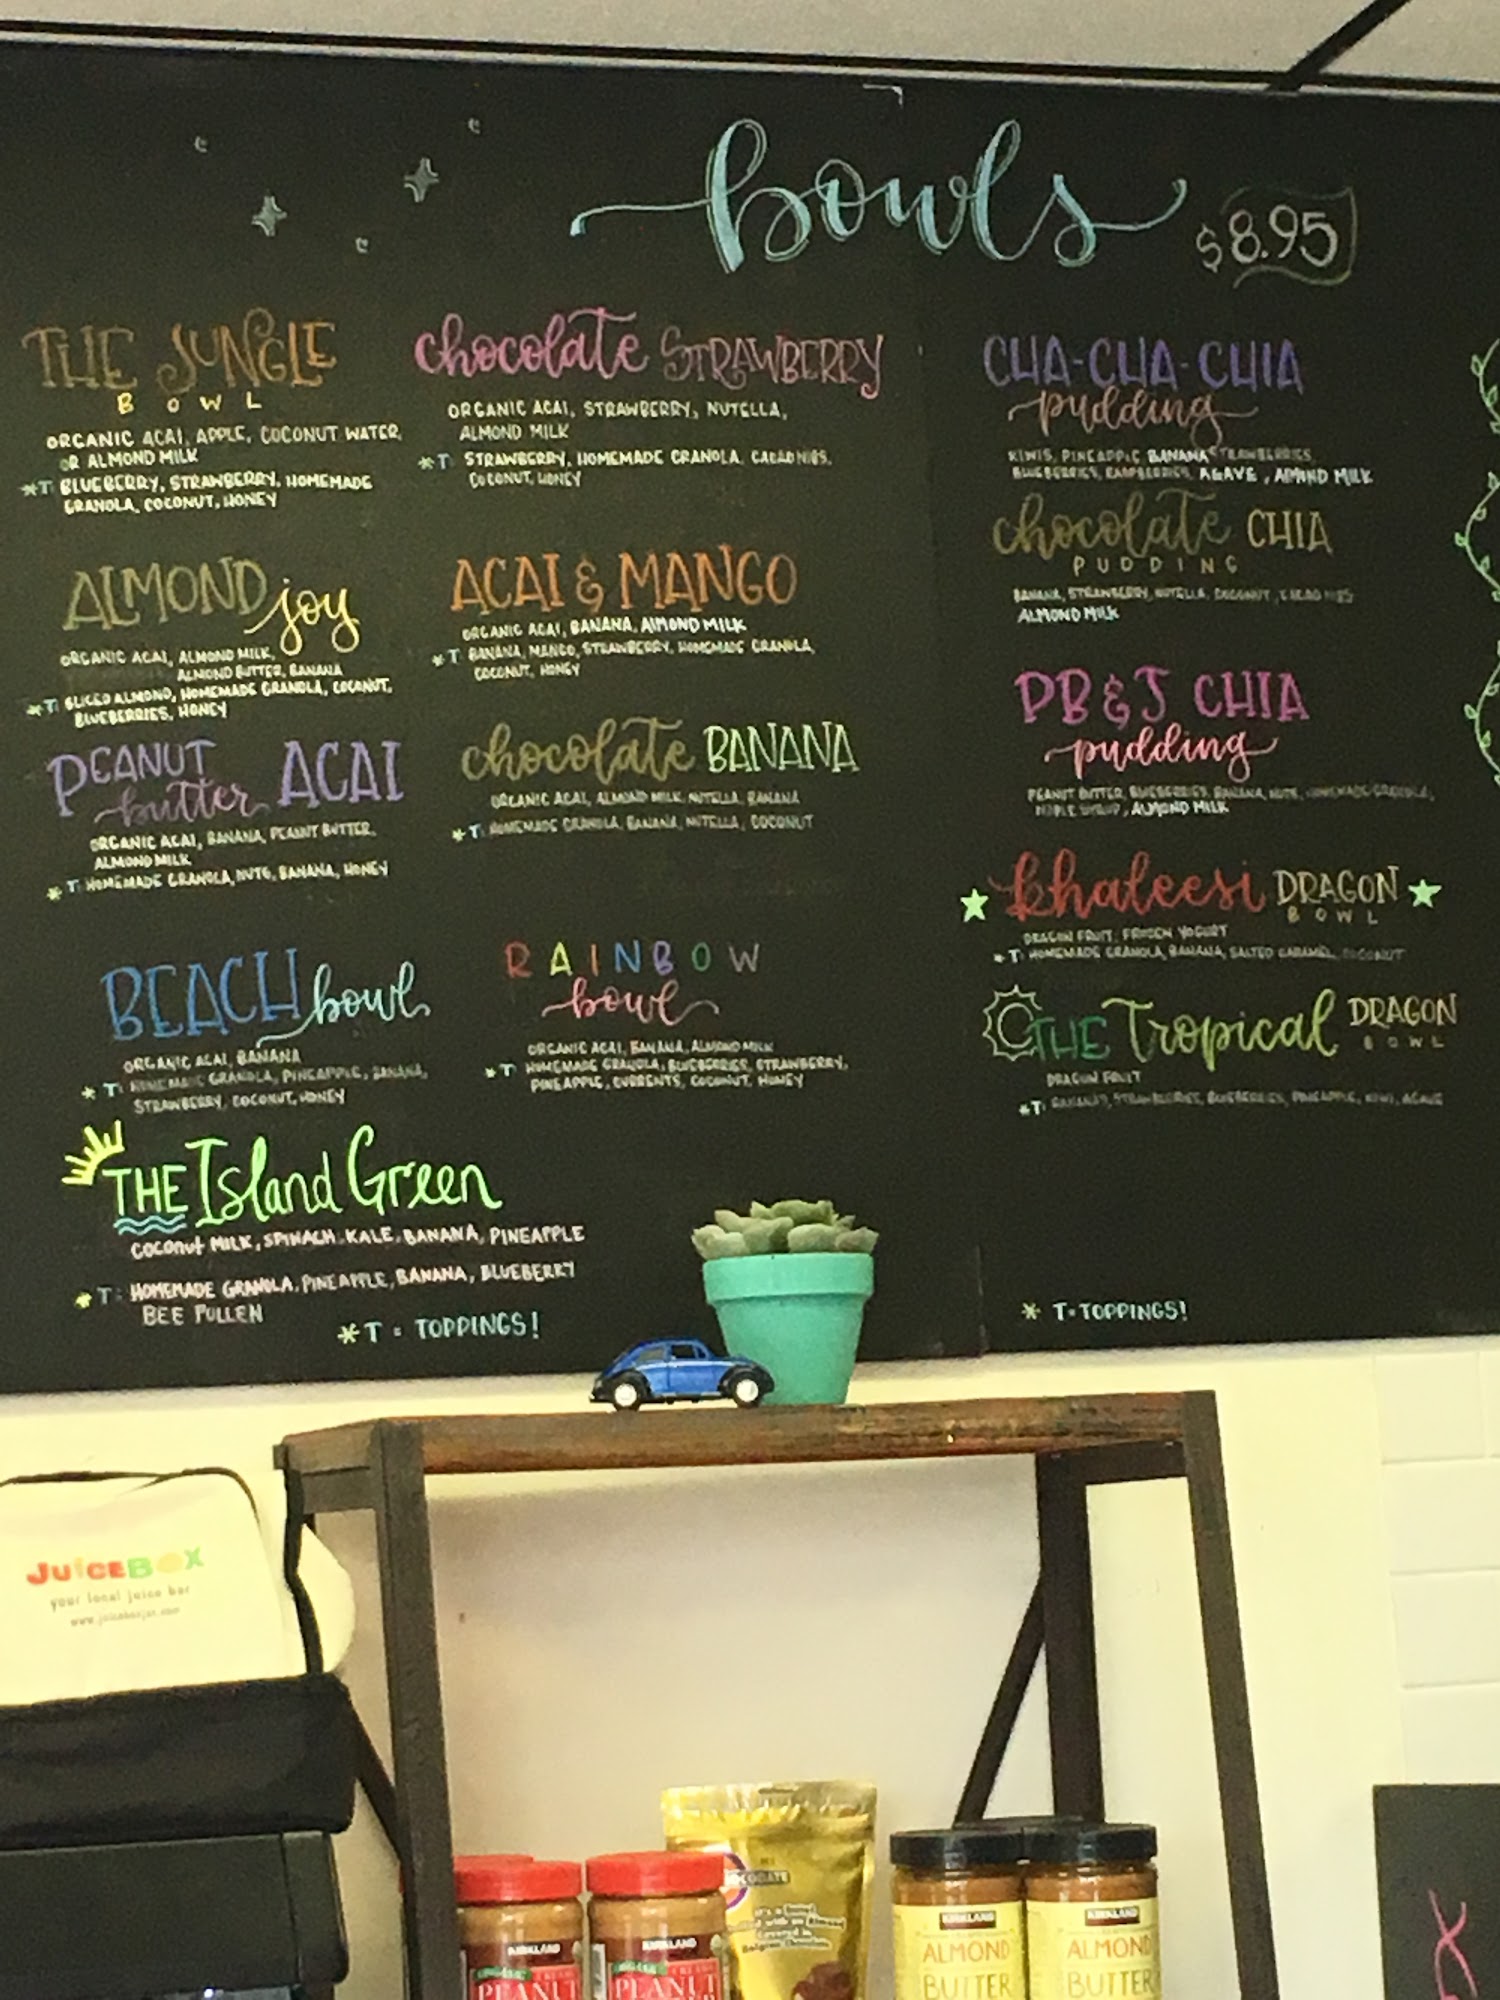 bowls $8.95
THE JUNGLE
BOWL
ORGANIC ACAI, APPLE, COCONUT WATER,
OR ALMOND MILK
*T: BLUEBERRY, STRAWBERRY, HOMEMADE
GRANOLA, COCONUT, HONEY
ALMOND joy
ORGANIC ACAI, ALMOND MILK,
ALMOND BUTTER, BANANA
*T: SLICED ALMOND, HOMEMADE GRANOLA, COCONUT,
BLUEBERRIES, HONEY
PEANUT
butter ACAI
ORGANIC ACAI, BANANA, PEANUT BUTTER,
ALMOND MILK
*T: HOMEMADE GRANOLA, NUTS, BANANA, HONEY
BEACH bowl
ORGANIC ACAI, BANANA
*T: HOMEMADE GRANOLA, PINEAPPLE, BANANA,
STRAWBERRY, COCONUT, HONEY
THE Island Green
COCONUT MILK, SPINACH, KALE, BANANA, PINEAPPLE
*T: HOMEMADE GRANOLA, PINEAPPLE, BANANA, BLUEBERRY
BEE POLLEN
*T = TOPPINGS!
chocolate STRAWBERRY
ORGANIC ACAI, STRAWBERRY, NUTELLA,
ALMOND MILK
*T: STRAWBERRY, HOMEMADE GRANOLA, CACAO NIBS,
COCONUT, HONEY
ACAI & MANGO
ORGANIC ACAI, BANANA, ALMOND MILK
*T: BANANA, MANGO, STRAWBERRY, HOMEMADE GRANOLA,
COCONUT, HONEY
chocolate BANANA
ORGANIC ACAI, ALMOND MILK, NUTELLA, BANANA
*T: HOMEMADE GRANOLA, BANANA, NUTELLA, COCONUT
RAINBOW
bowl
ORGANIC ACAI, BANANA, ALMOND MILK
*T: HOMEMADE GRANOLA, BLUEBERRIES, STRAWBERRY,
PINEAPPLE, CURRENTS, COCONUT, HONEY
CHA-CHA-CHIA
pudding
KIWIS, PINEAPPLE, BANANA, STRAWBERRIES,
BLUEBERRIES, RASPBERRIES, AGAVE, ALMOND MILK
chocolate CHIA
PUDDING
BANANA, STRAWBERRY, NUTELLA, COCONUT, CACAO NIBS
ALMOND MILK
PB & J CHIA
pudding
PEANUT BUTTER, BLUEBERRIES, BANANA, NUTS, HOMEMADE GRANOLA,
MAPLE SYRUP, ALMOND MILK
khaleesi DRAGON
BOWL
DRAGON FRUIT, FROZEN YOGURT
*T: HOMEMADE GRANOLA, BANANA, SALTED CARAMEL, COCONUT
THE Tropical DRAGON
BOWL
DRAGON FRUIT
*T: BANANAS, STRAWBERRIES, BLUEBERRIES, PINEAPPLE, KIWI, AGAVE
* T=TOPPINGS!
JUICEBOX
your local juice bar
KIRKLAND
ORGANIC
PEANUT
KIRKLAND
ORGANIC
PEANUT
KIRKLAND
ALMOND
BUTTER
KIRKLAND
ALMOND
BUTTER